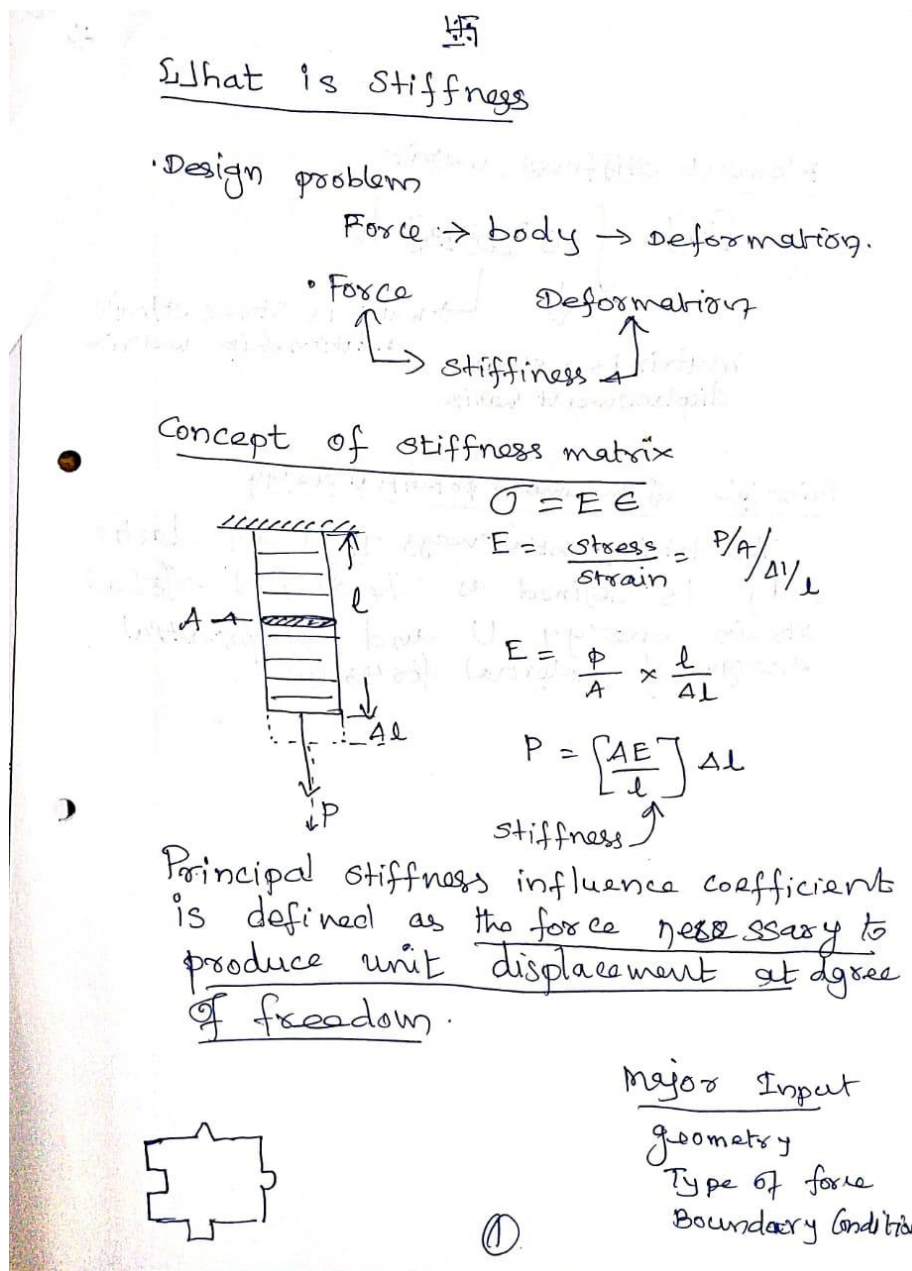 卐
What is Stiffness
• Design problem
Force → body → Deformation.
• Force Deformation
stiffiness
Concept of stiffness matrix
σ = E ϵ
E = stress/strain = P/A / Δl/l
A → l
E = P/A × l/Δl
Δl
P = [AE/l] Δl
P
stiffness
Principal stiffness influence coefficient
is defined as the force nesessary to
produce unit displacement at dgree
of freedom.
Major Input
geometry
Type of force
Boundary Condition
①